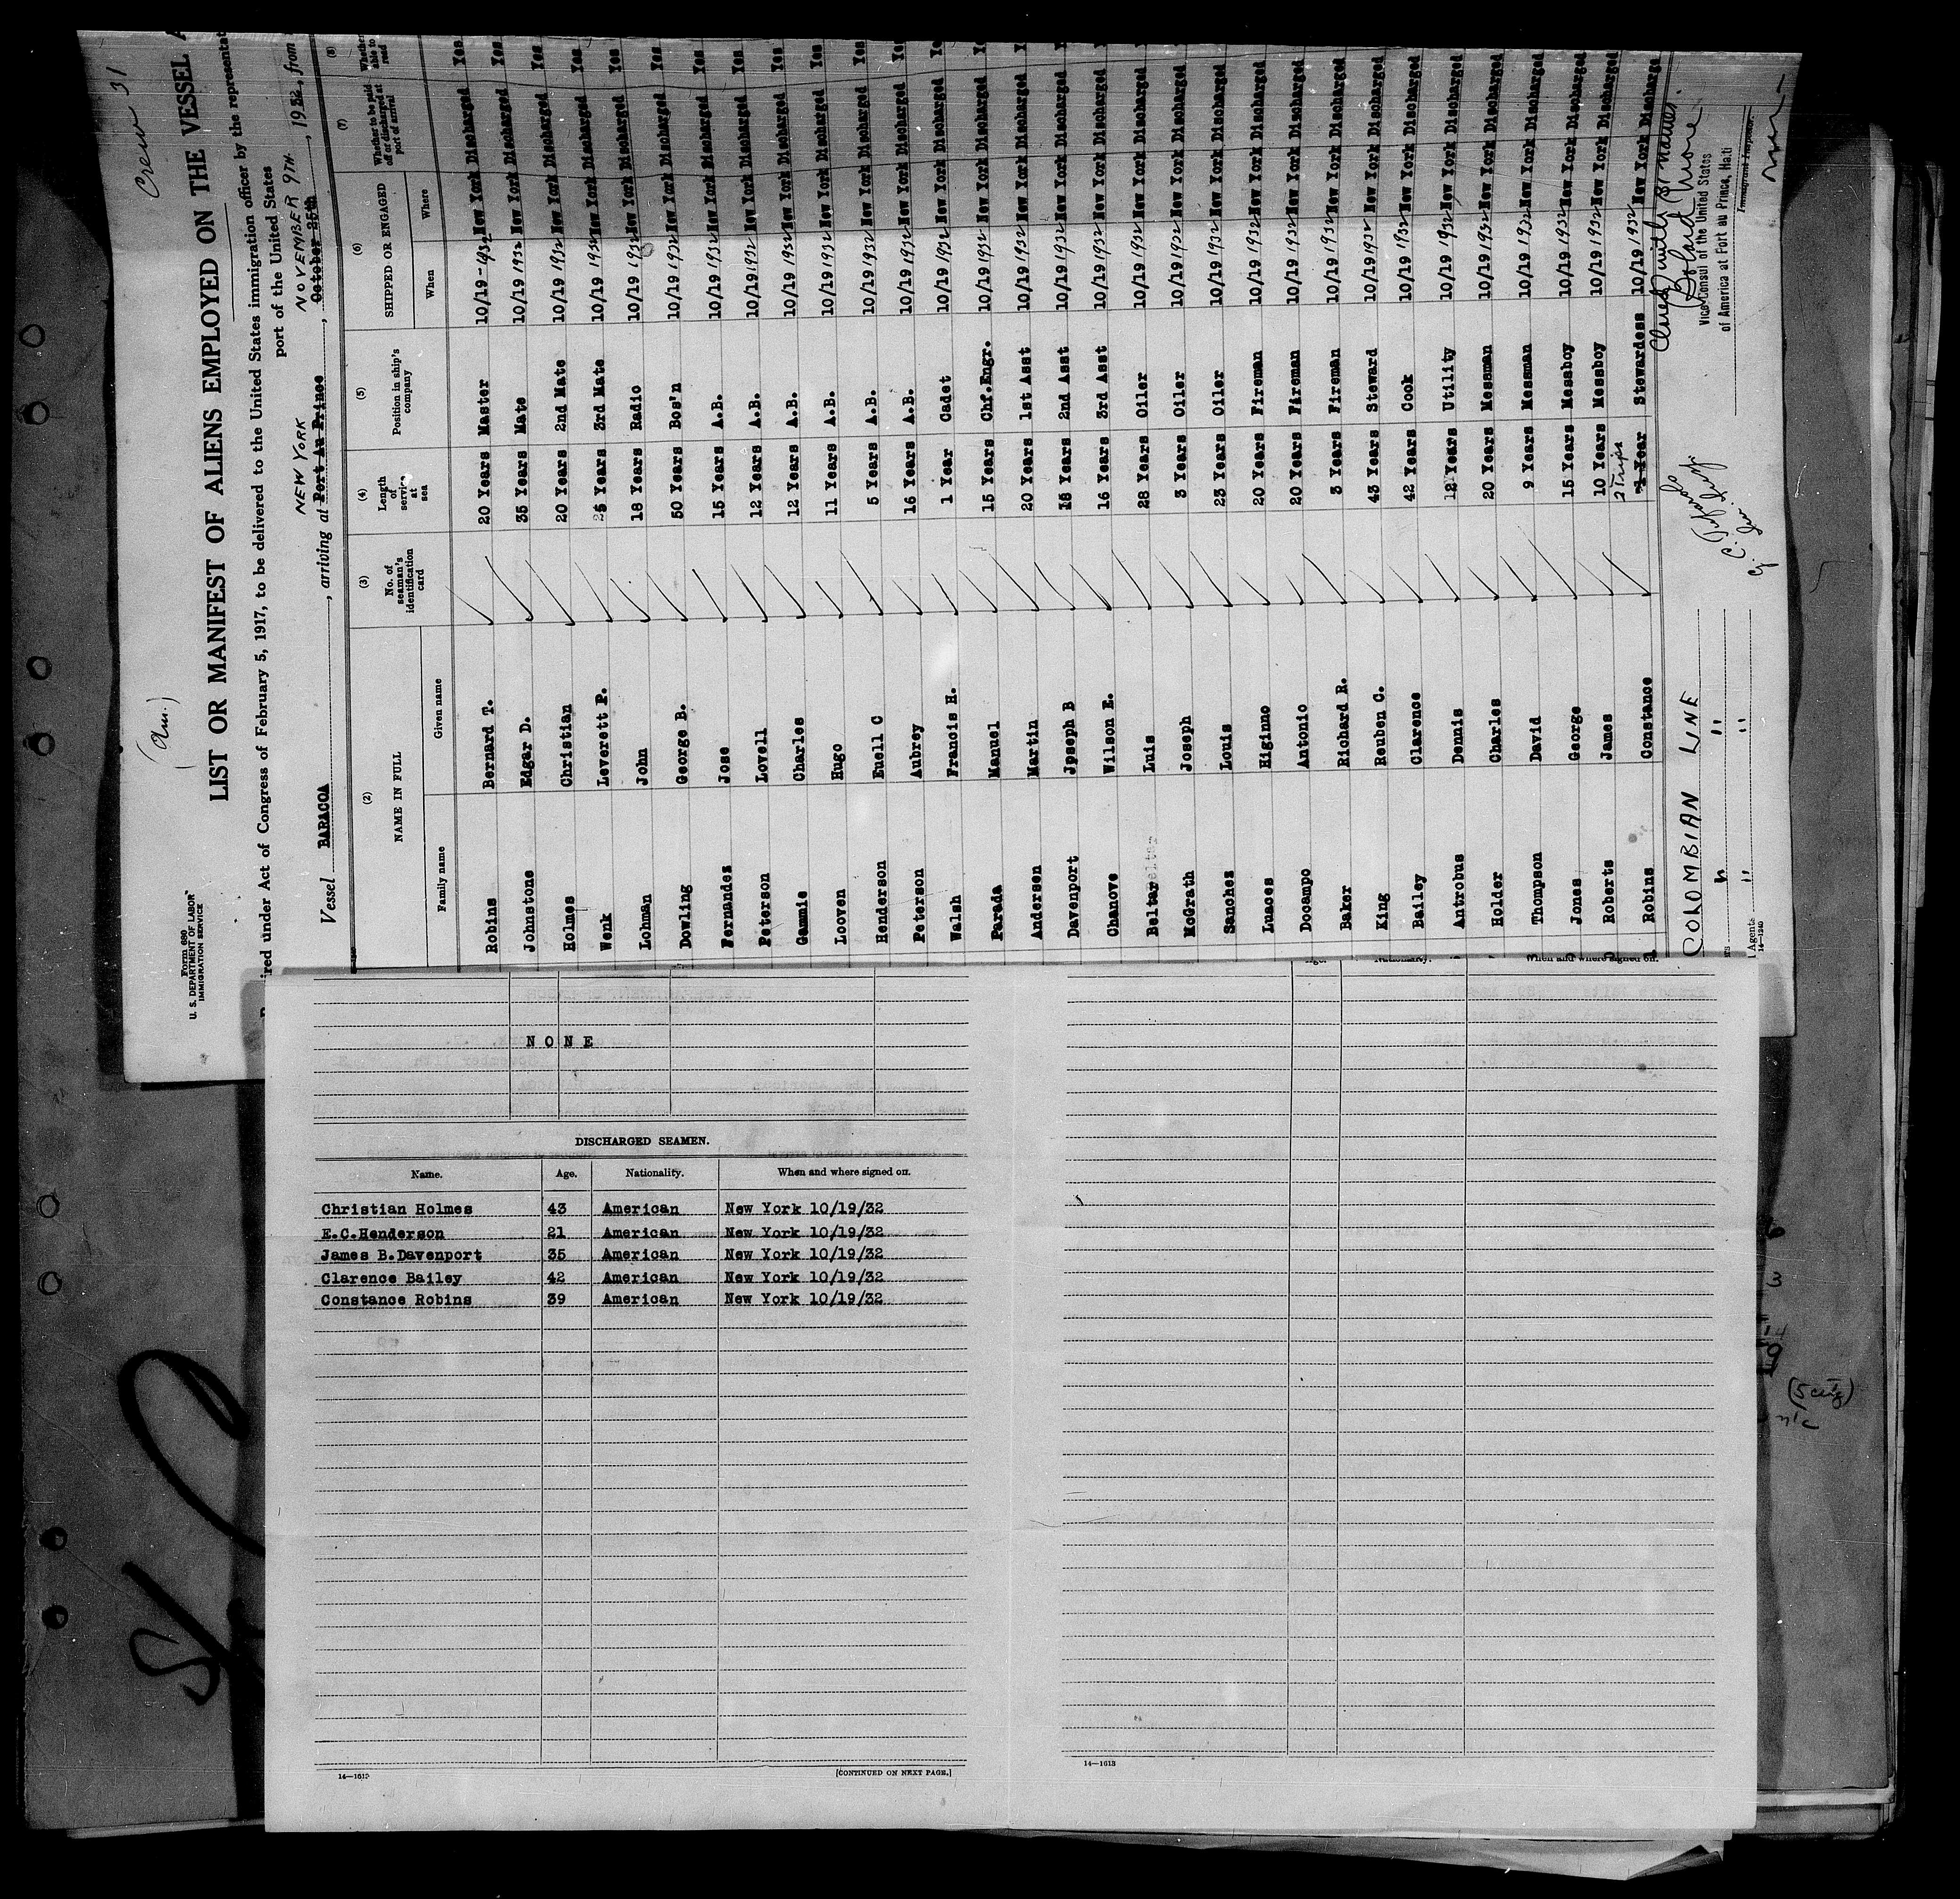 Crew 31
(Am.)
Form 680
U. S. DEPARTMENT OF LABOR
IMMIGRATION SERVICE
LIST OR MANIFEST OF ALIENS EMPLOYED ON THE VESSEL
ired under Act of Congress of February 5, 1917, to be delivered to the United States immigration officer by the representat
port of the United States
NEW YORK NOVEMBER 9TH
Vessel BARACOA, arriving at Port Au Prince, October 25th, 1932, from
(2) (3) (4) (5) (6) (7) (8)
NAME IN FULL No. of seaman's identification card Length of service at sea Position in ship's company SHIPPED OR ENGAGED Whether to be paid off or discharged at port of arrival Whether able to read
Family name Given name When Where
Robins Bernard T. 20 Years Master 10/19-1932 New York Discharged Yes
Johnstone Edgar D. 35 Years Mate 10/19 1932 New York Discharged Yes
Holmes Christian 20 Years 2nd Mate 10/19 1932 New York Discharged Yes
Wenk Leverett P. 25 Years 3rd Mate 10/19 1932 New York Discharged Yes
Lohman John 18 Years Radio 10/19 1932 New York Discharged Yes
Dowling George B. 50 Years Bos'n 10/19 1932 New York Discharged Yes
Fernandez Jose 15 Years A.B. 10/19 1932 New York Discharged Yes
Peterson Lovell 12 Years A.B. 10/19 1932 New York Discharged Yes
Gammie Charles 12 Years A.B. 10/19 1932 New York Discharged Yes
Looven Hugo 11 Years A.B. 10/19 1932 New York Discharged Yes
Henderson Euell C 5 Years A.B. 10/19 1932 New York Discharged Yes
Peterson Aubrey 16 Years A.B. 10/19 1932 New York Discharged Ye
Walsh Francis H. 1 Year Cadet 10/19 1932 New York Discharged Ye
Parada Manuel 15 Years Chf.Engr. 10/19 1932 New York Discharged Ye
Andersen Martin 20 Years 1st Asst 10/19 1932 New York Discharged Y
Davenport Jpseph B 18 Years 2nd Asst 10/19 1932 New York Discharged Y
Chanove Wilson E. 16 Years 3rd Asst 10/19 1932 New York Discharged Y
Beltar Luis 28 Years Oiler 10/19 1932 New York Discharged
McGrath Joseph 3 Years Oiler 10/19 1932 New York Discharged
Sanchez Louis 23 Years Oiler 10/19 1932 New York Discharged
Luaces Higinno 20 Years Fireman 10/19 1932 New York Discharged
Docampo Antonio 20 Years Fireman 10/19 1932 New York Discharged
Baker Richard R. 3 Years Fireman 10/19 1932 New York Discharged
King Reuben C. 43 Years Steward 10/19 1932 New York Discharged
Bailey Clarence 42 Years Cook 10/19 1932 New York Discharged
Antrobus Dennis 12 Years Utility 10/19 1932 New York Discharged
Holder Charles 20 Years Messman 10/19 1932 New York Discharged
Thompson David 9 Years Messman 10/19 1932 New York Discharged
Jones George 15 Years Messboy 10/19 1932 New York Discharged
Roberts James 10 Years Messboy 10/19 1932 New York Discharged
2 Trips
Robins Constance 1 Year Stewardess 10/19 1932 New York Discharged
COLOMBIAN LINE
Vice Consul of the United States
of America at Port au Prince, Haiti
Immigrant Inspector.
Agents
14—1240
NONE
DISCHARGED SEAMEN.
Name. Age. Nationality. When and where signed on.
Christian Holmes 43 American New York 10/19/32
E.C.Henderson 21 American New York 10/19/32
James B.Davenport 35 American New York 10/19/32
Clarence Bailey 42 American New York 10/19/32
Constance Robins 39 American New York 10/19/32
14—1613
[CONTINUED ON NEXT PAGE.]
When and where signed on.
14—1613